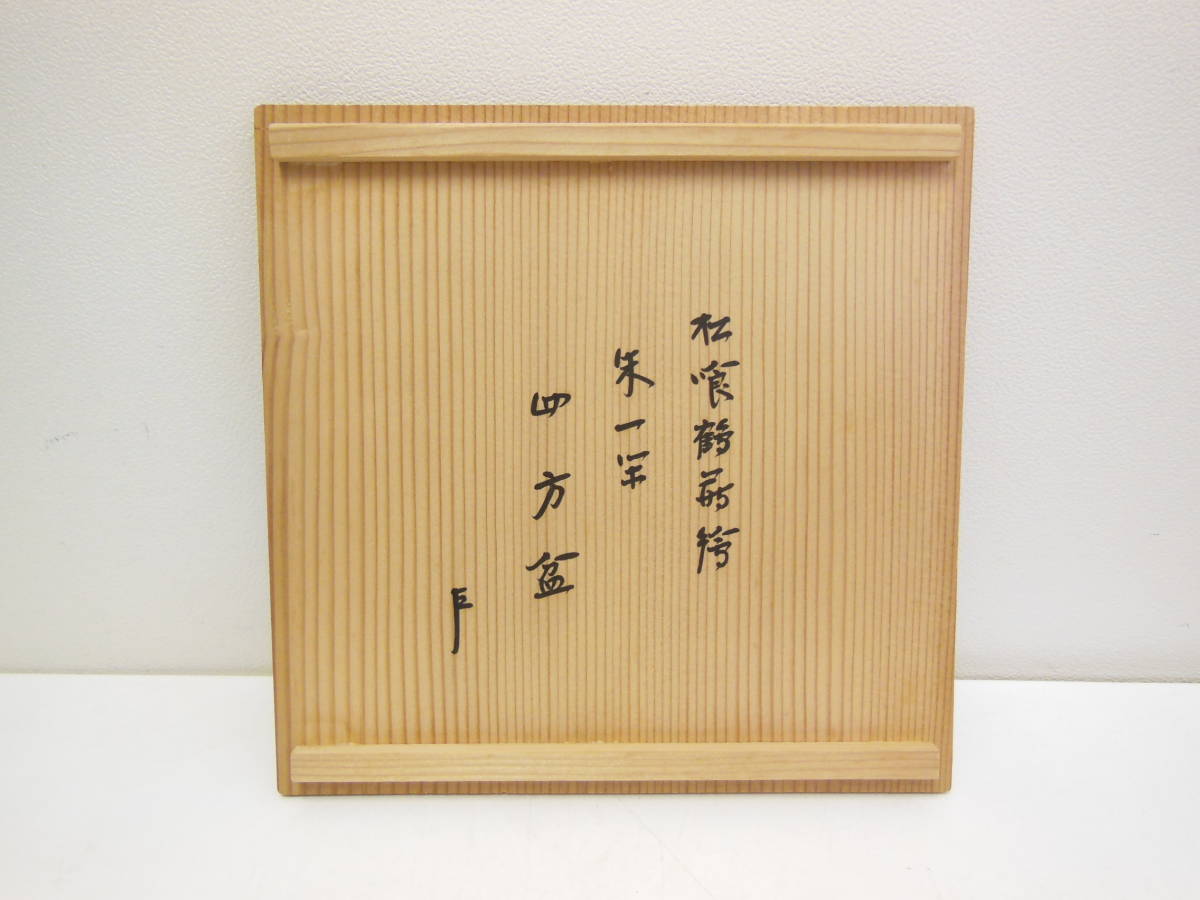 松喰鶴蒔絵
朱一閑
四方盆